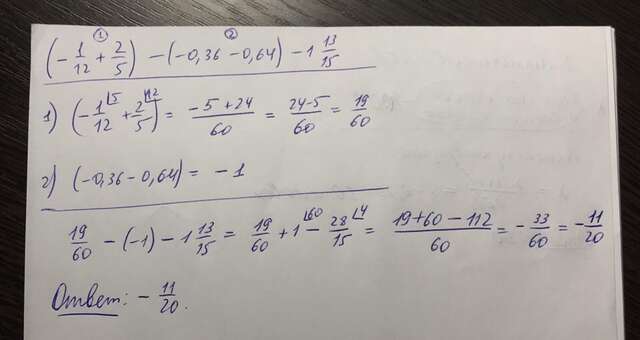 ① ②
(-1/12 + 2/5) - (-0,36 - 0,64) - 1 13/15
1) (-1/12⌊5 + 2/5⌊12) = -5+24/60 = 24-5/60 = 19/60
2) (-0,36 - 0,64) = -1
19/60 - (-1) - 1 13/15 = 19/60 + 1⌊60 - 28/15⌊4 = 19+60-112/60 = -33/60 = -11/20
Ответ: -11/20.